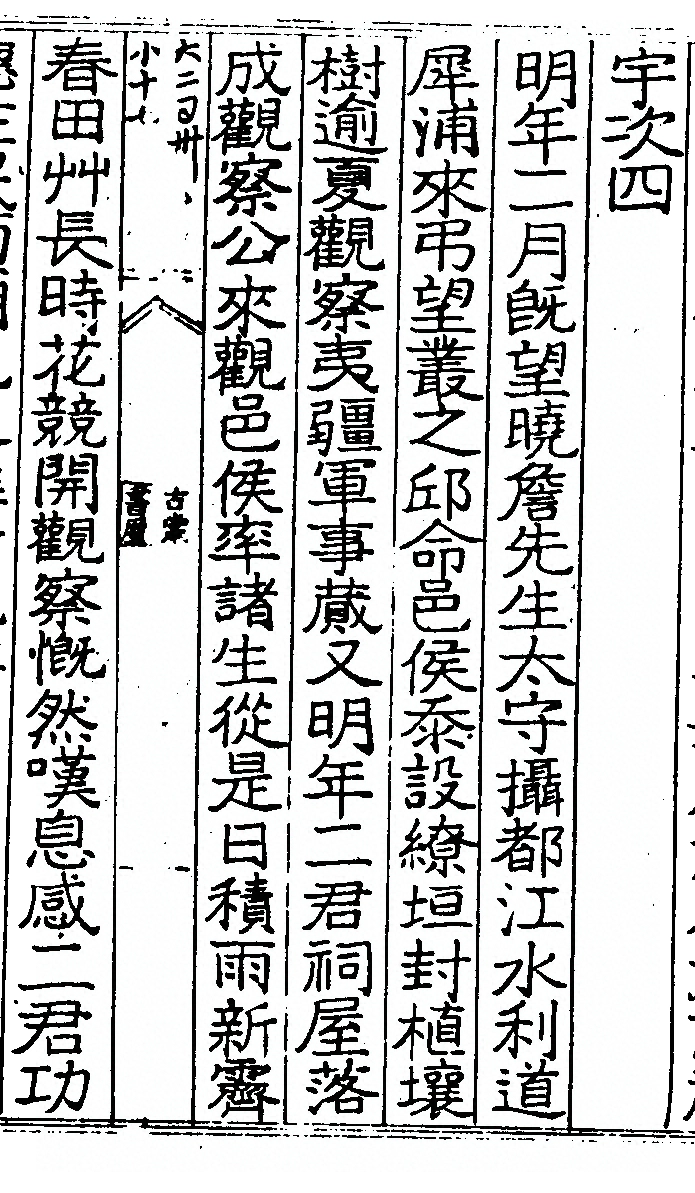 宇次四
明年二月既望曉詹先生太守攝都江水利道
犀浦來弔望叢之邱命邑侯泰設繚垣封植壤
樹逾夏觀察夷疆軍事蕆又明年二君祠屋落
成觀察公來觀邑侯率諸生從是日積雨新霽
春田艸長時花競開觀察慨然嘆息感二君功